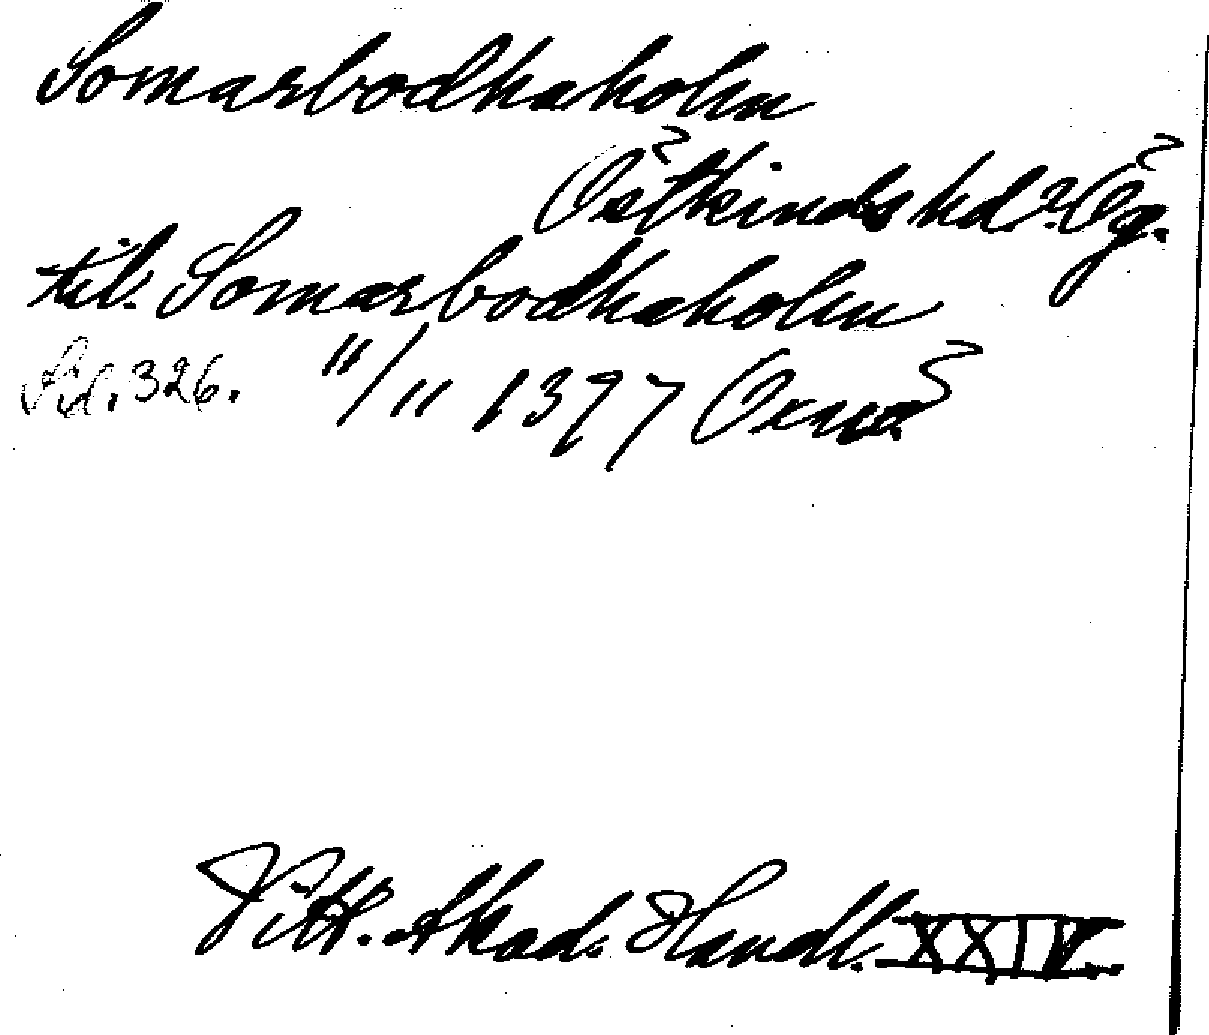 Somarbodhaholm
Östkinds hd? Ög.
til. Somarbodhaholm
Sid. 326. "/" 1397 Ornö
Vitt. Akad. Handl. XXIV.